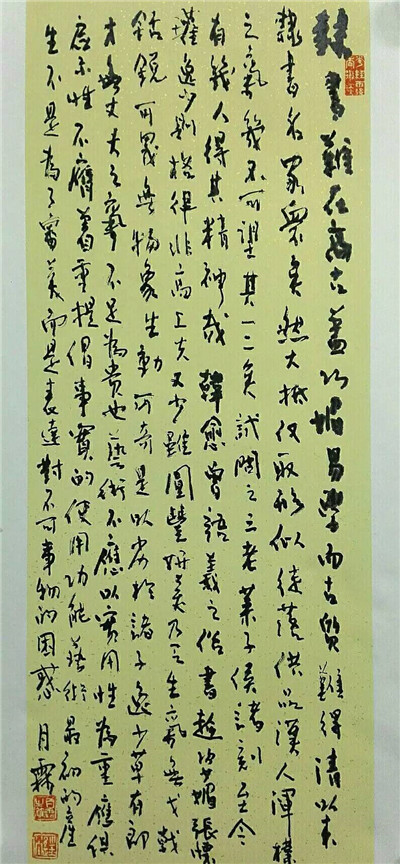 隸書難在高古蓋巧媚易學而古質難得清以來
隸書名家衆矣然大抵仅取形似徒落供品漢人渾樸
之氣幾不可望其一二矣試閱之三老萊子侯諸刻至今
有幾人得其精神哉韓愈曾語羲之俗書趁姿媚張懷
瓘逸少則格律非高上夫又少雖圓豐妍美乃乏生氣無戈戟
銛銳可畏無物象生動可奇是以劣於諸子逸少草有郎
才無丈夫之氣不足為貴也藝術不應以實用性為重應俱
啟示性不應着重提倡事實的使用功能藝術最初的產
生不是為了審美而是表達對不可事物的困惑月霖